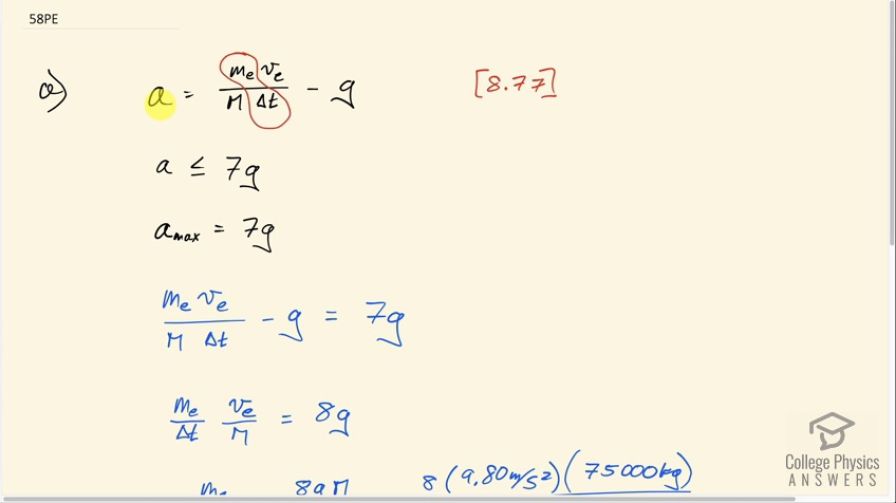 58PE
a) a = mₑvₑ / M Δt − g [8.77]
a ≤ 7g
aₘₐₓ = 7g
mₑvₑ / M Δt − g = 7g
mₑ/Δt vₑ/M = 8g
mₑ 8gM 8(9.80m/s²)(75000kg)
College Physics
ANSWERS